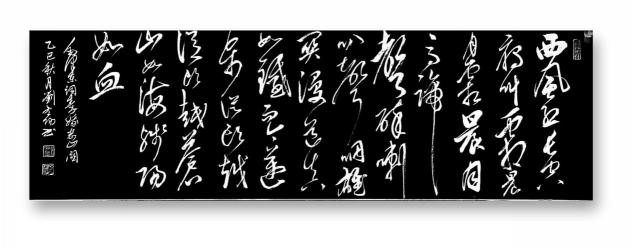 西風烈長空
雁叫霜晨
月霜晨月
馬蹄
聲碎喇
叭聲咽雄
關漫道真
如鐵而今邁
步從頭越
從頭越蒼
山如海殘陽
如血
毛澤東詞憶秦娥婁山關
乙巳秋月劉文書